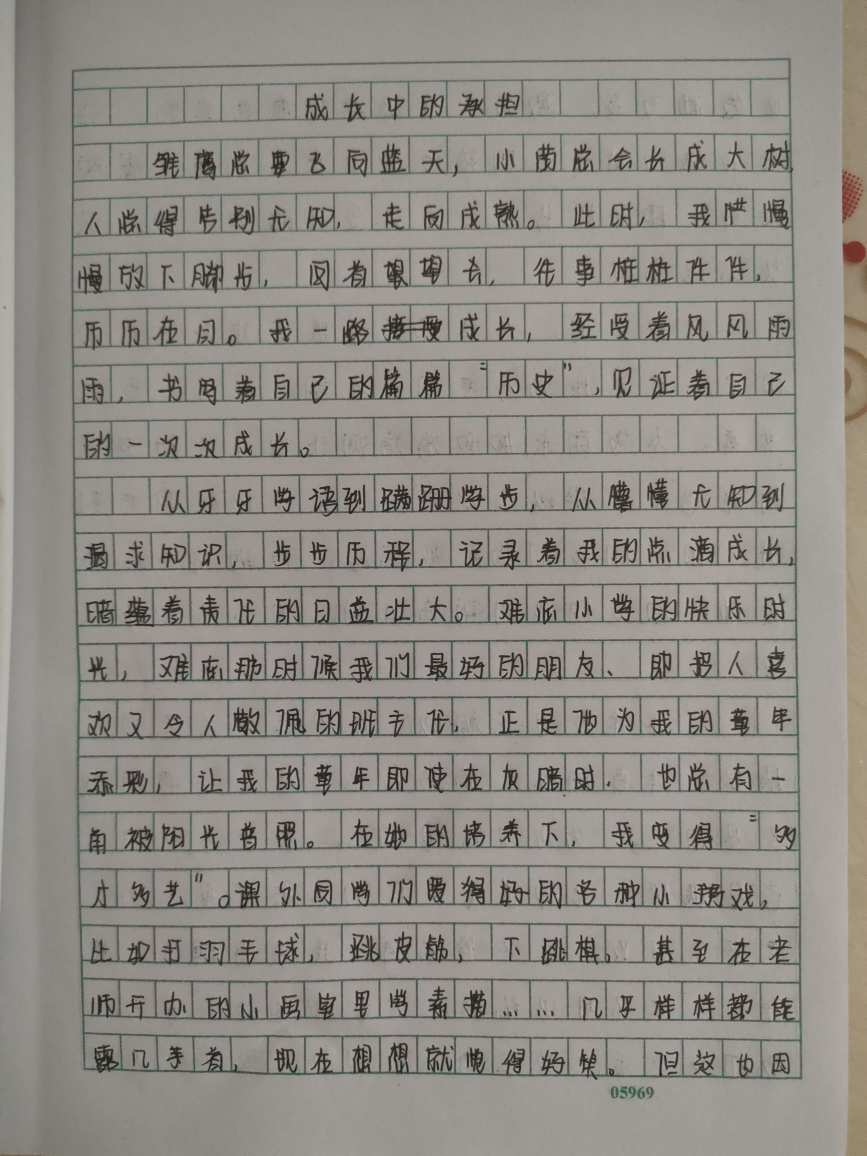 成长中的承担
雏鹰总要飞向蓝天，小苗总会长成大树
人总得告别无知，走向成熟。此时，我慢
慢放下脚步，回首眼望去，往事桩桩件件，
历历在目。我一路成长，经受着风风雨
雨，书写着自己的篇篇“历史”，见证着自己
的一次次成长。
从牙牙学语到蹒跚学步，从懵懂无知到
渴求知识，步步历程，记录着我的点滴成长，
暗蕴着责任的日益壮大。难忘小学的快乐时
光，难忘那时候我们最好的朋友、即把人喜
欢又令人敬佩的班主任，正是他为我的童年
添彩，让我的童年即使在灰暗时．也总有一
角被阳光普照。在她的培养下，我变得“多
才多艺”。课外同学们爱得好的各种小游戏，
比如打羽毛球，跳皮筋，下跳棋。甚至在老
师开办的小画室里学素描……几乎样样都能
露几手着，现在想想就觉得好笑。但这也因
05969